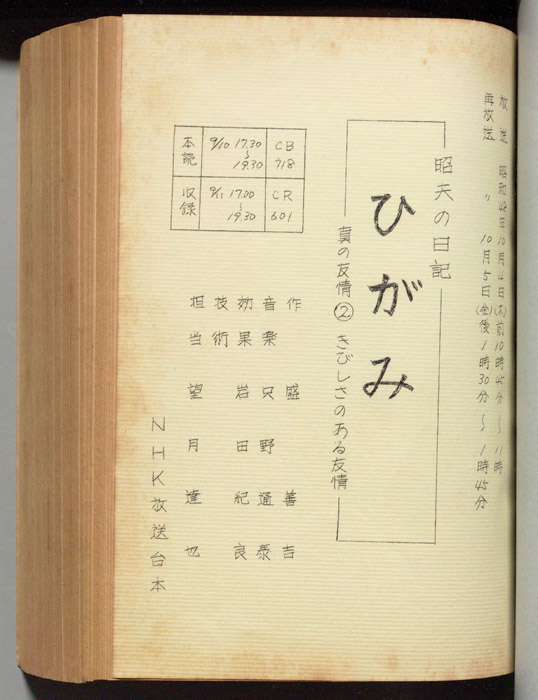 放送 昭和48年10月4日(木)前10時45分～11時
再放送 〃 10月5日(金)後1時30分～1時45分
昭夫の日記
ひがみ
真の友情②きびしさのある友情
作 盛善吉
音楽 只野通泰
効果 岩田紀良
技術
担当 望月達也
NHK放送台本
本読 9/10 17.30～19.30 CB 718
収録 9/11 17.00～19.30 CR 601